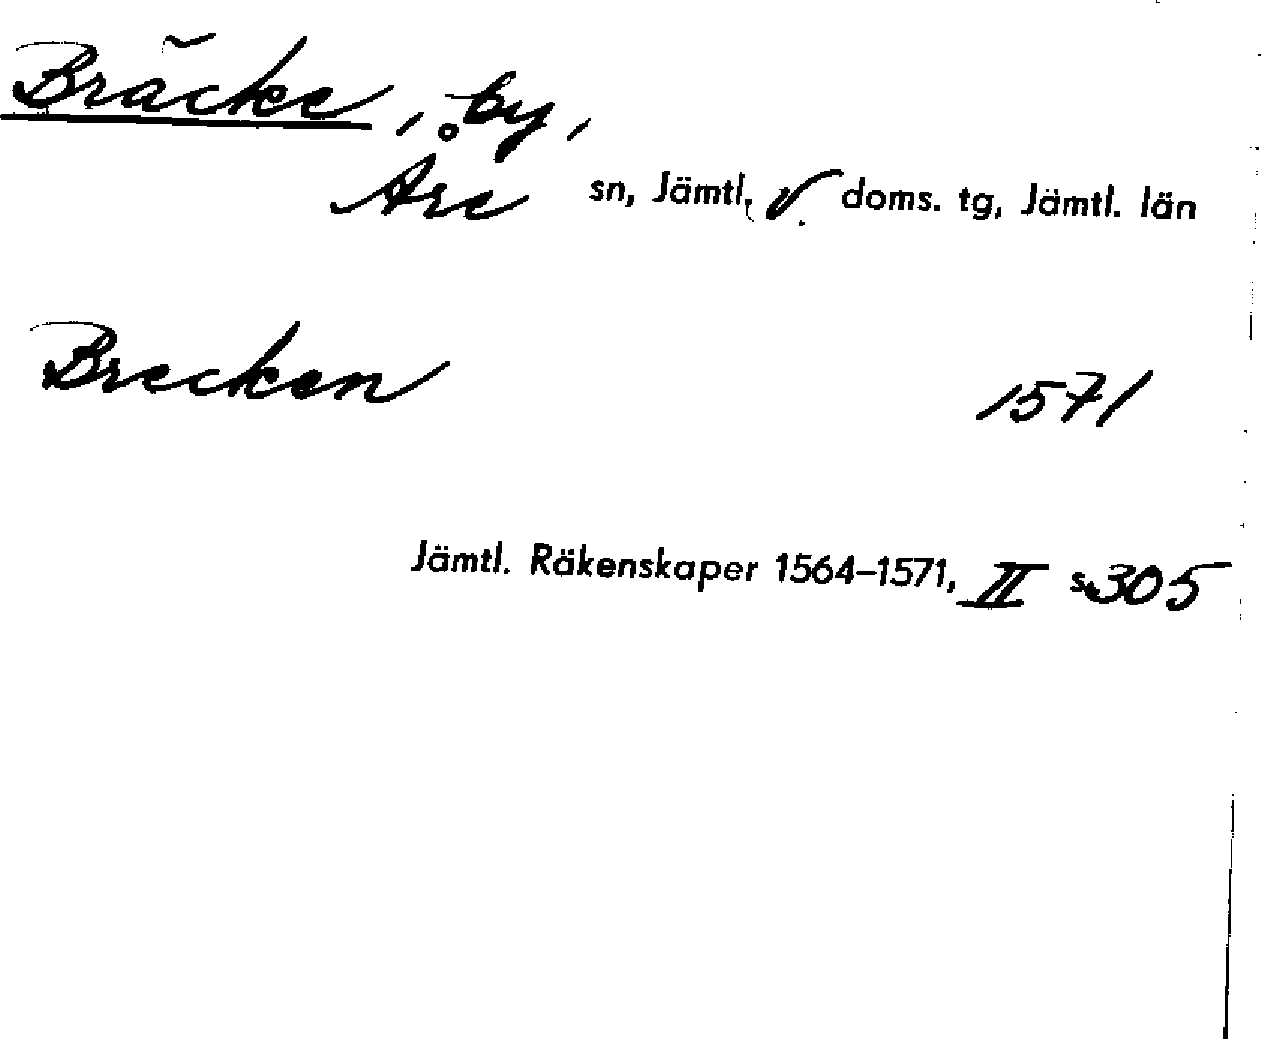 Bräcke, by,
Åre sn, Jämtl. v. doms. tg, Jämtl. län
Brecken 1571
Jämtl. Räkenskaper 1564–1571, II s. 305